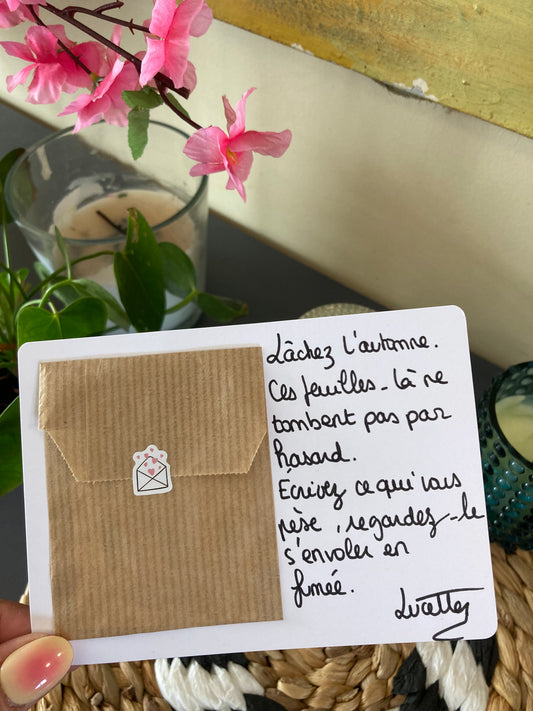 Lâchez l'automne.
Ces feuilles-là ne
tombent pas par
hasard.
Écrivez ce qui vous
pèse, regardez-le
s'envoler en
fumée.
Lucette